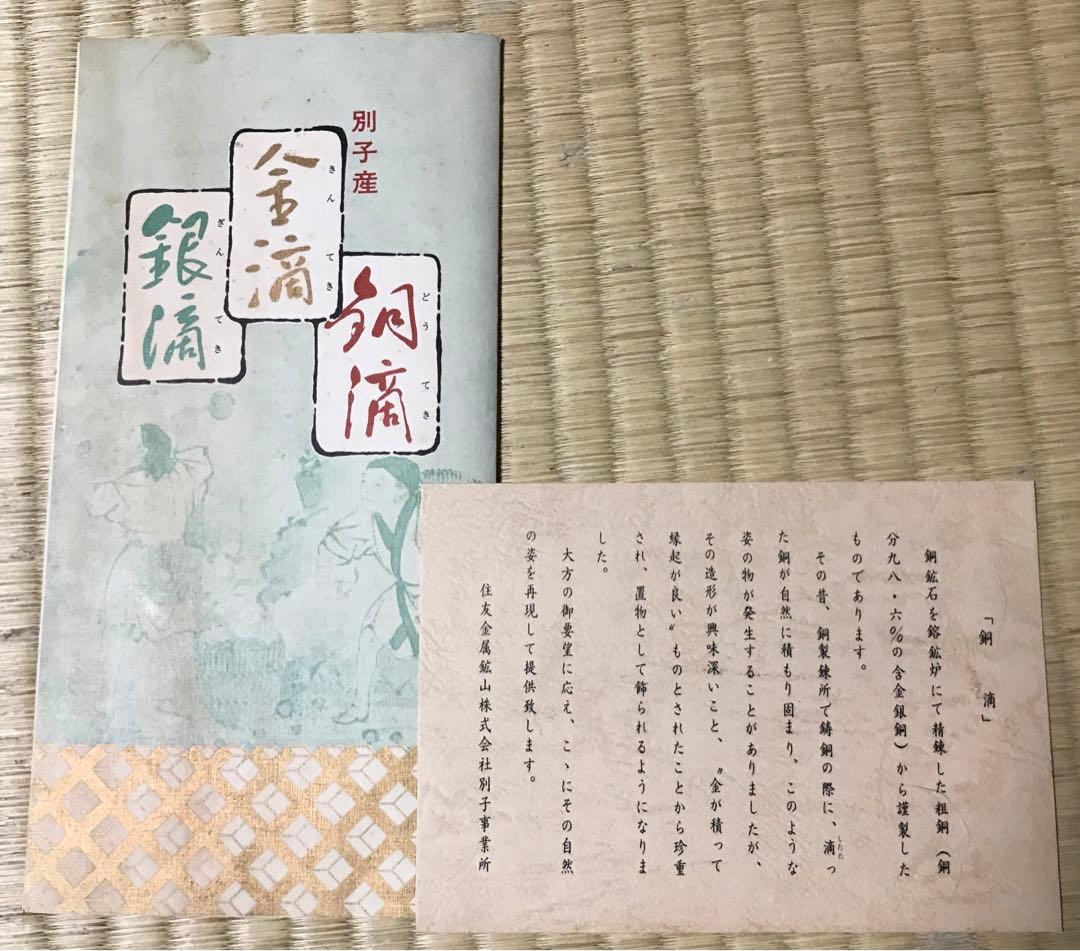 別子産
金滴
きんてき
銀滴
ぎんてき
銅滴
どうてき
「銅　滴」
銅鉱石を鎔鉱炉にて精錬した粗銅（銅
分九八・六％の含金銀銅）から謹製した
ものであります。
その昔、銅製錬所で鋳銅の際に、滴っ
したた
た銅が自然に積もり固まり、このような
姿の物が発生することがありましたが、
その造形が興味深いこと、〝金が積って
縁起が良い〟ものとされたことから珍重
され、置物として飾られるようになりま
した。
大方の御要望に応え、こゝにその自然
の姿を再現して提供致します。
住友金属鉱山株式会社別子事業所